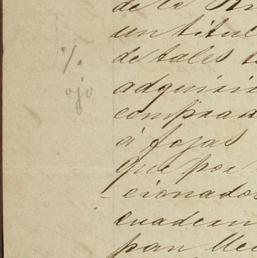 de la
un titul
de tales
%
ojo
adquisi
comprad
á fojas
que por
cionados
cuadern
pan